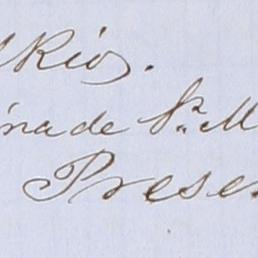 Rios.
ina de Sr. M
Prese